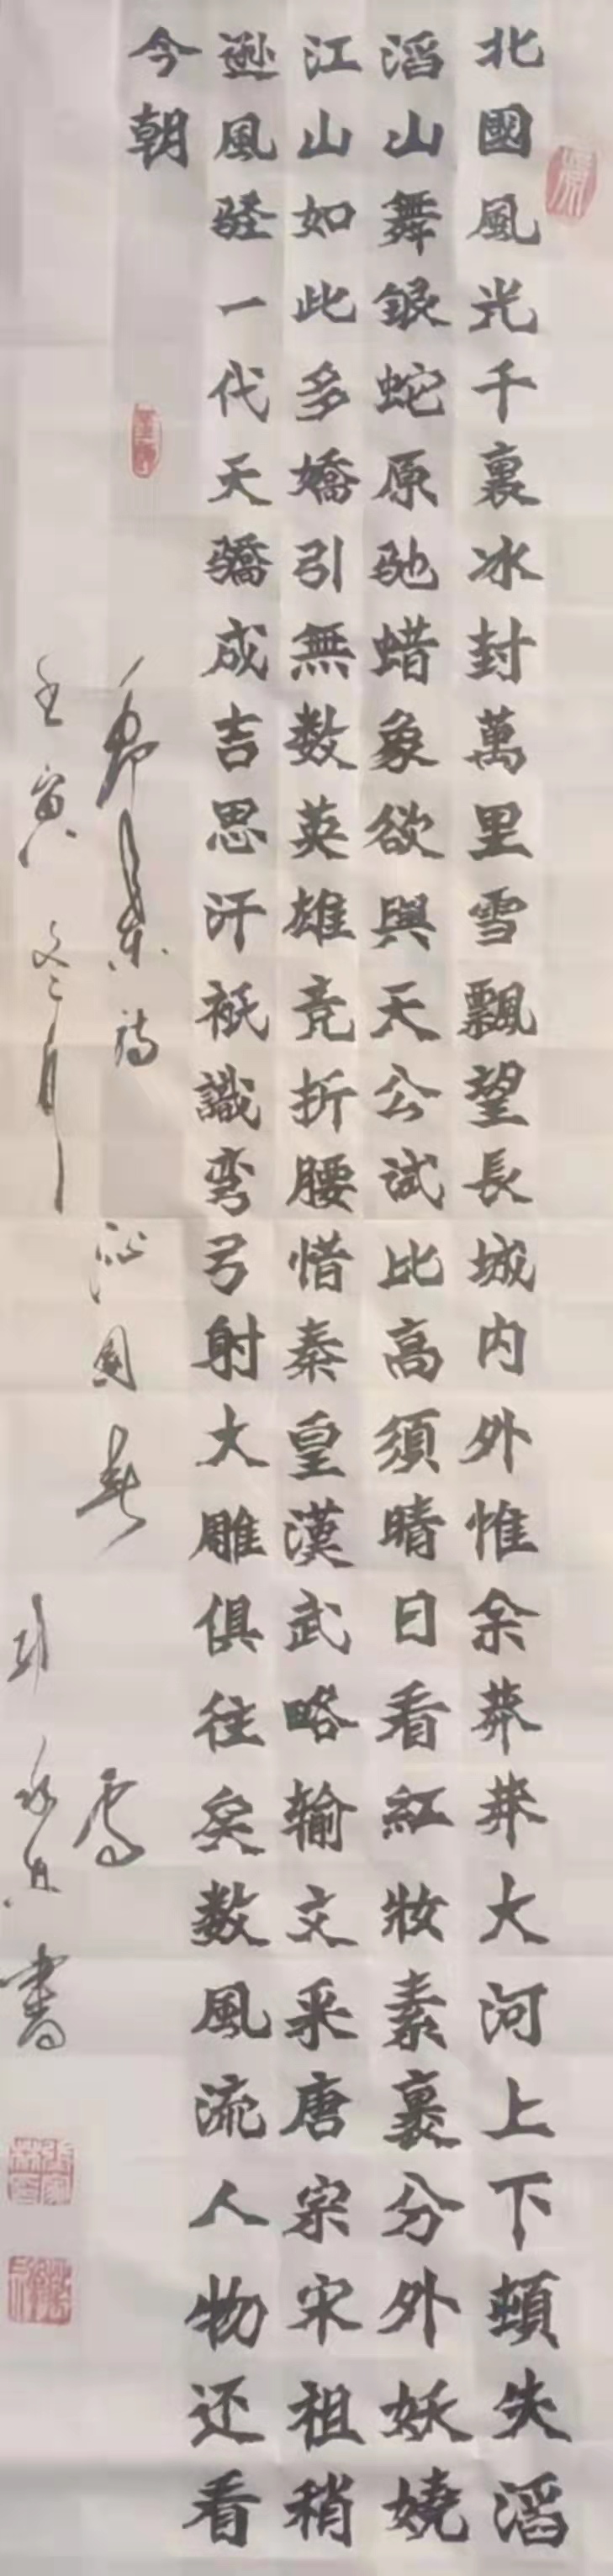 北國風光千裏冰封萬里雪飄望長城内外惟余莽莽大河上下頓失滔
滔山舞銀蛇原驰蜡象欲與天公試比高須晴日看紅妝素裹分外妖嬈
江山如此多嬌引無数英雄竞折腰惜秦皇漢武略输文采唐宗宋祖稍
逊風骚一代天驕成吉思汗袛識彎弓射大雕俱往矣数風流人物还看
今朝
毛澤東詞 沁園春 雪
壬寅 冬月 書